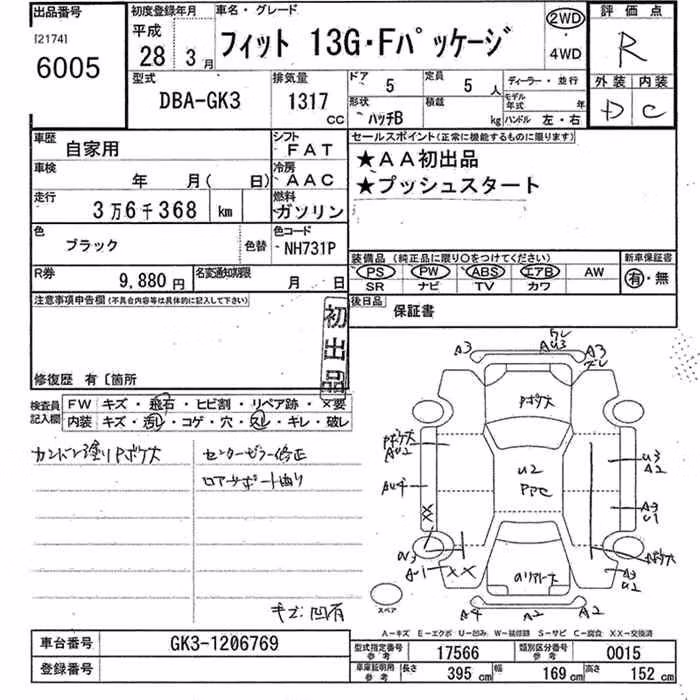 出品番号
[2174]
6005
初度登録年月
平成
28 3月
車名・グレード
フィット 13G・Fパッケージ
2WD
4WD
評価点
R
外装 内装
D C
型式
DBA-GK3
排気量
1317
CC
ドア
5
定員
5 人
形状
ハッチB
積載
kg
ディーラー・並行
モデル年式 年
ハンドル 左・右
車歴
自家用
シフト
FAT
車検
年 月( 日)
冷房
AAC
走行
3万6千368 km
燃料
ガソリン
色
ブラック
色替
色コード
NH731P
R券
9,880円
名変通知期限
月 日
セールスポイント(正常に機能するものに限ります)
★AA初出品
★プッシュスタート
装備品 (純正品に限り○をつけてください)
PS PW ABS エアB AW
SR ナビ TV カワ
新車保証書
有・無
後日品
保証書
注意事項申告欄(不具合内容等は具体的に記入して下さい)
初出品
修復歴 有〔箇所
検査員記入欄
FW キズ・飛石・ヒビ割・リペア跡・×要
内装 キズ・汚レ・コゲ・穴・スレ・キレ・破レ
センターピラー修正
ロアサポート曲り
キズ凹有
A3
AU3
A3
Pボケ大
Pボケ大
AU2
U2
PPC
U3
A2
AU4
XX
A3
U1
AU3
AU1
XX
Pボケ大
A3
U2
A4
A2
A2
スペア
A-キズ E-エクボ U-凹み W-補修跡 S-サビ C-腐食 XX-交換済
車台番号
GK3-1206769
登録番号
型式指定番号
参考
17566
類別区分番号
参考
0015
車庫証明用
参考
長さ
395 cm
幅
169 cm
高さ
152 cm